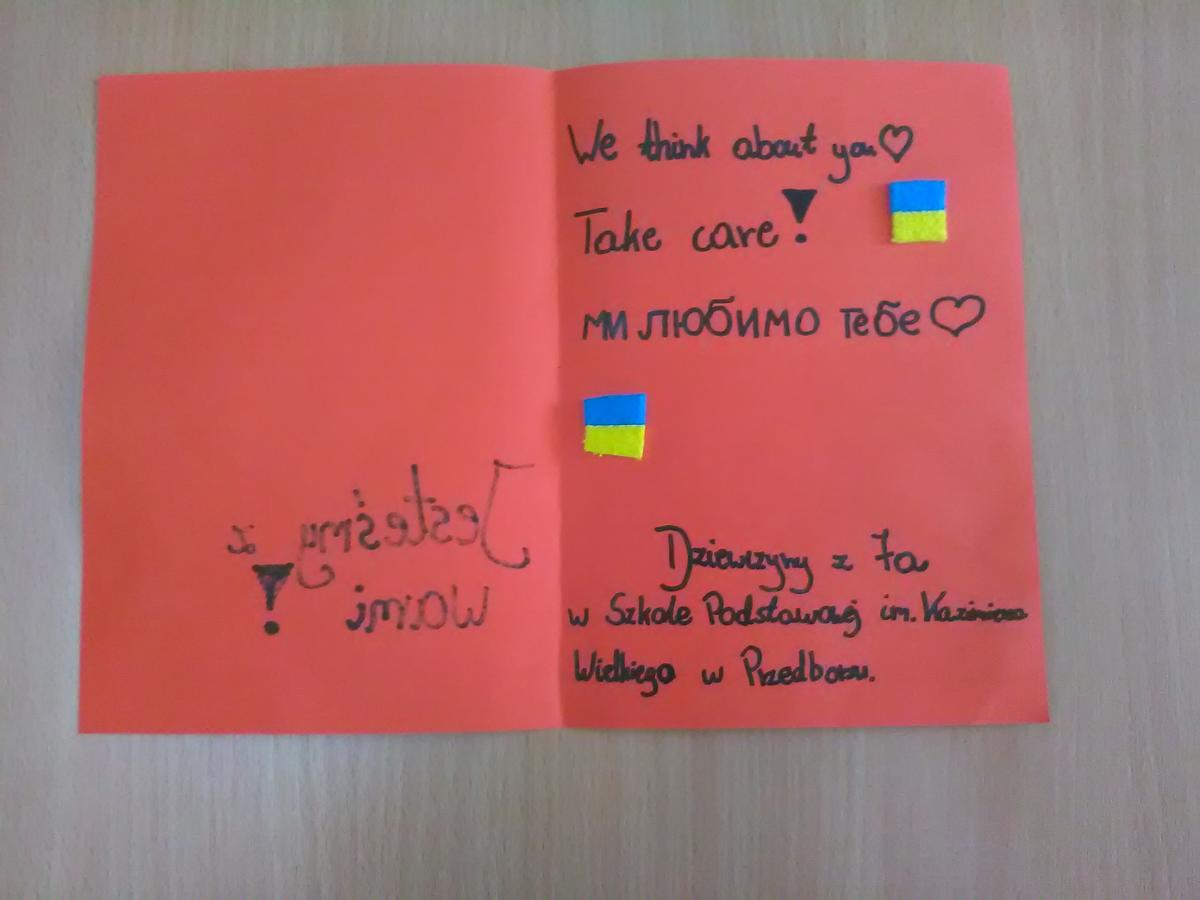 Jesteśmy z
wami!
We think about you♡
Take care!
ми любимо тебе♡
Dziewczyny z 7a
w Szkole Podstawowej im. Kazimierza
Wielkiego w Przedborzu.